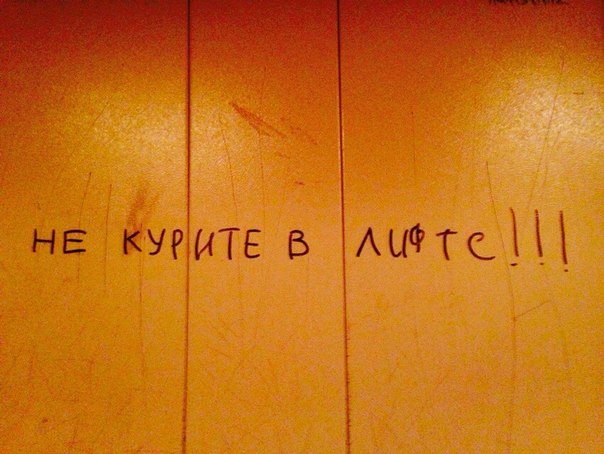 НЕ КУРИТЕ В ЛИФТЕ!!!